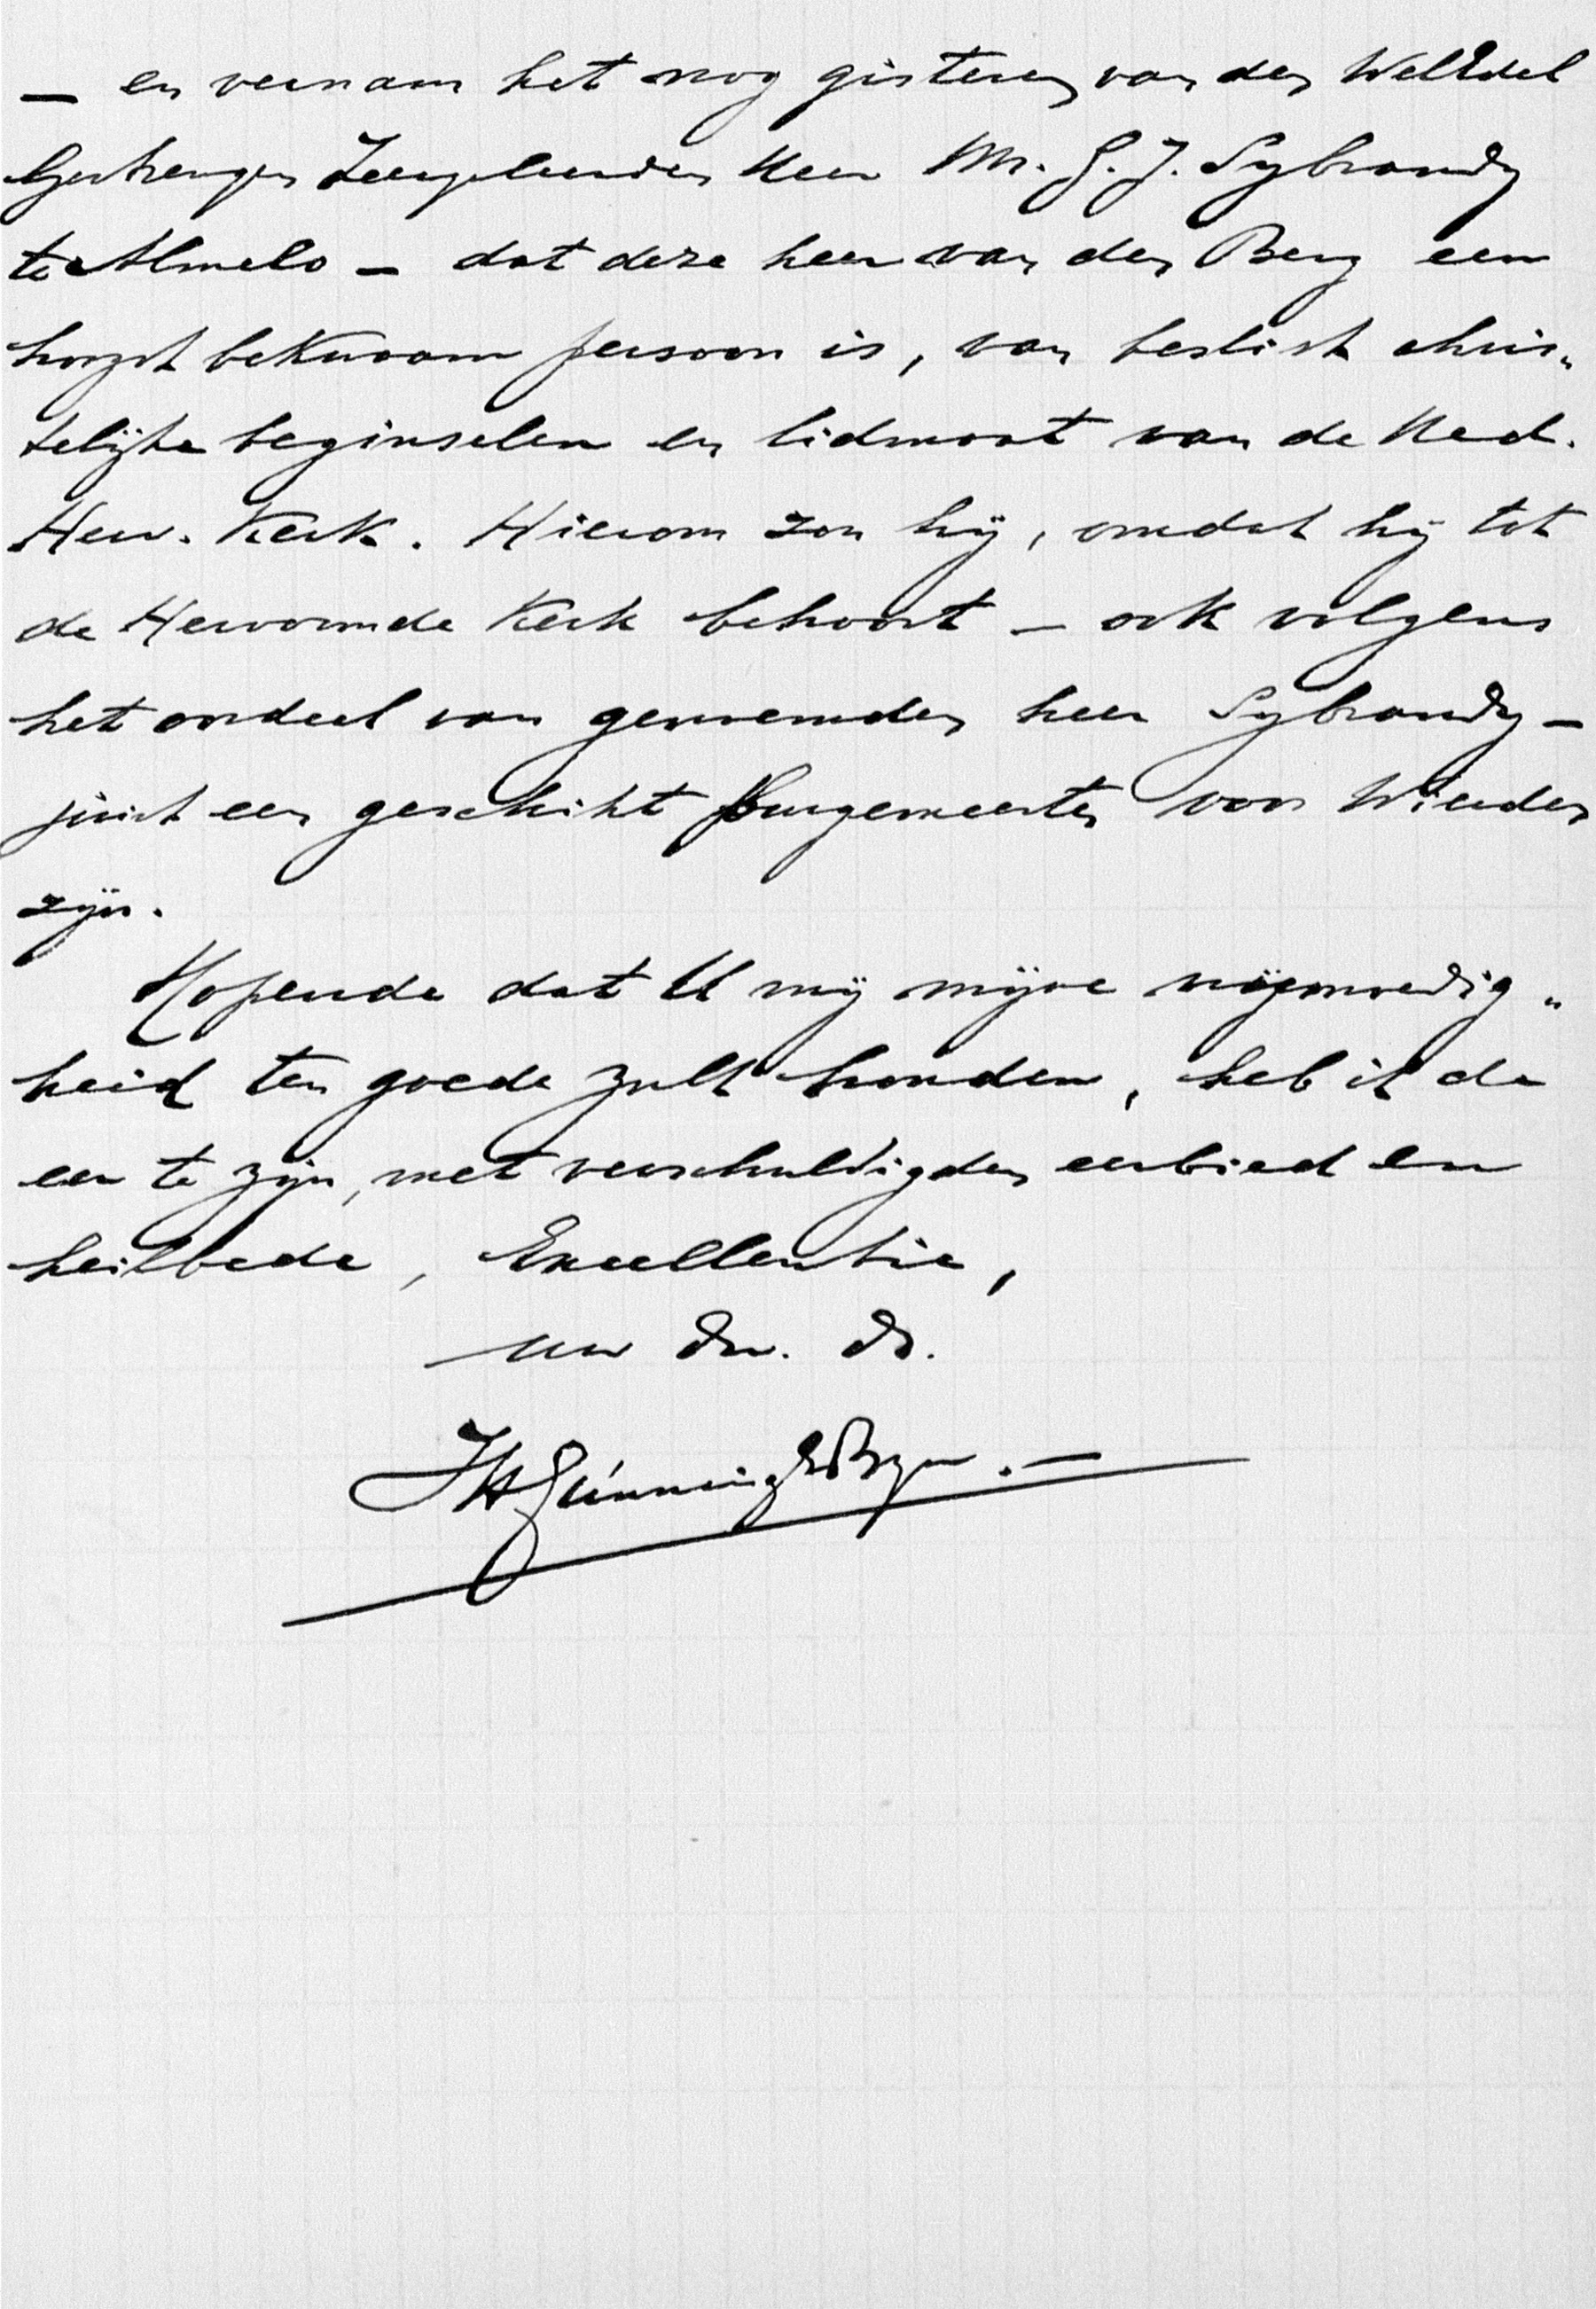 — en vernam het nog gisteren van den WelEdel
Gestrengen Zeergeleerden Heer Mr. G. J. Sybrandy
te Almelo — dat deze heer van den Berg een
hoogst bekwaam persoon is, van beslist chris„
telijke beginselen en lidmaat van de Ned.
Herv. Kerk. Hierom zou hij, omdat hij tot
de Hervormde Kerk behoort — ook volgens
het oordeel van genoemden heer Sybrandy —
juist een geschikt burgemeester voor Wierden
zijn.
Hopende dat U mij mijne vrijmoedig„
heid ten goede zult houden, heb ik de
eer te zijn, met verschuldigden eerbied en
heilbede, Excellentie,
uw dw. dr.
JHGunning